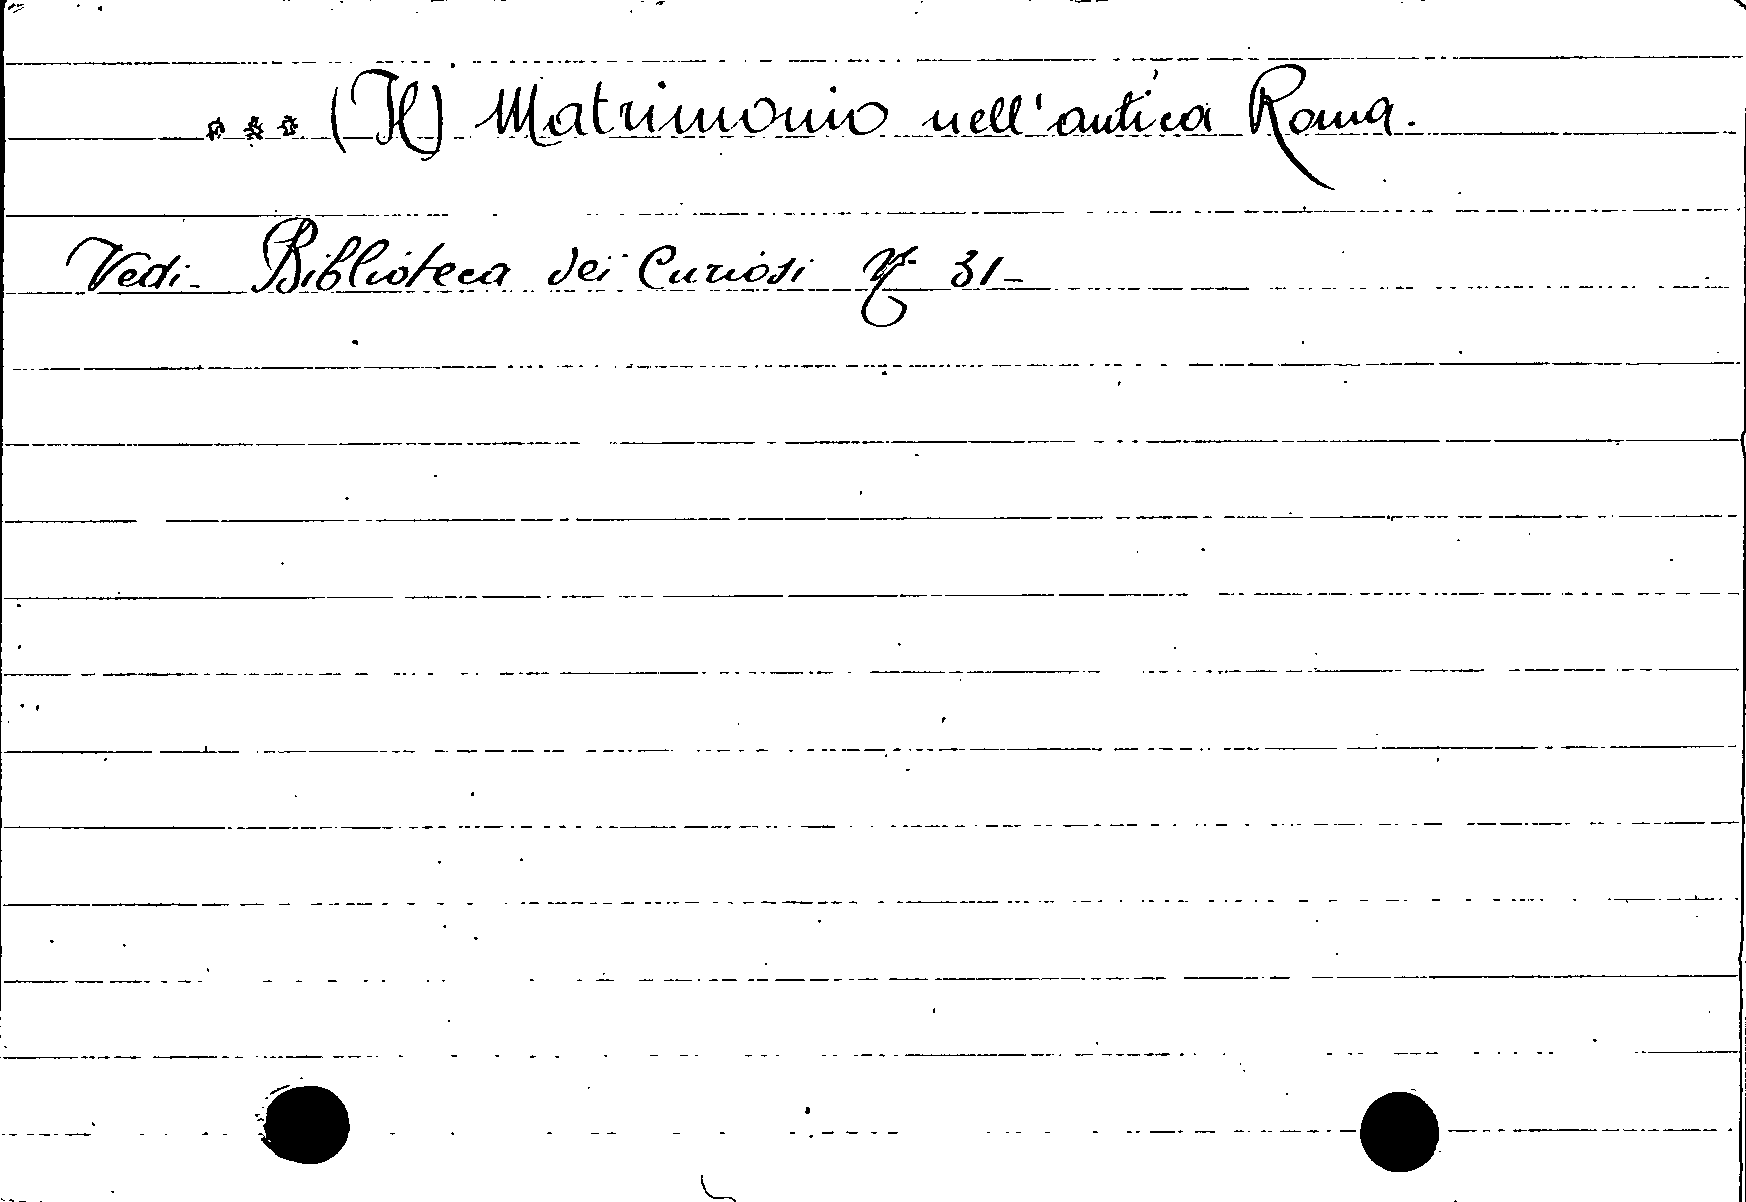 *** (Il) Matrimonio nell'antica Roma.
Vedi - Biblioteca dei Curiosi N° 31 -